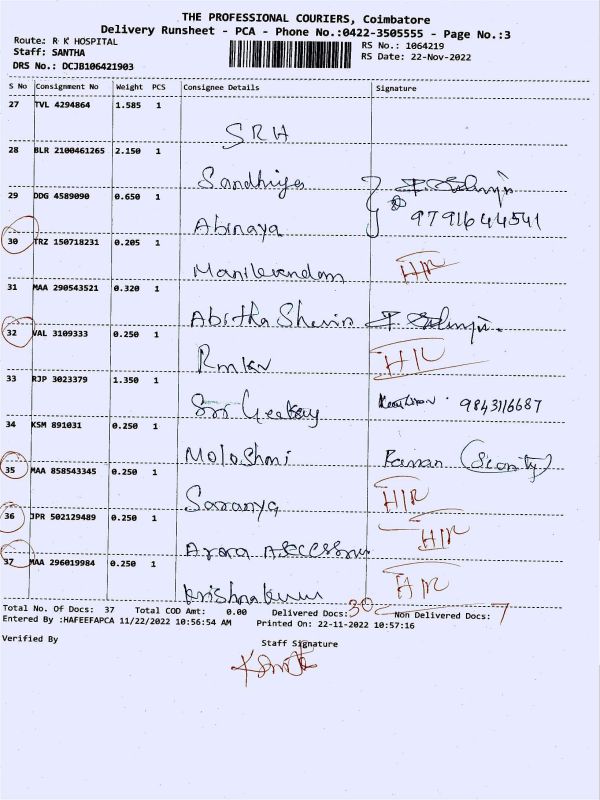 THE PROFESSIONAL COURIERS, Coimbatore
Delivery Runsheet - PCA - Phone No.:0422-3505555 - Page No.:3
Route: R K HOSPITAL
RS No.: 1064219
Staff: SANTHA
RS Date: 22-Nov-2022
DRS No.: DCJB106421903
S No Consignment No Weight PCS Consignee Details Signature
27 TVL 4294864 1.585 1
SRH
28 BLR 2100461265 2.150 1
Sandhiya
29 DDG 4589090 0.650 1
Abinaya 9791644541
30 TRZ 150718231 0.205 1
H/R
31 MAA 290543521 0.320 1
Abitha Sherin
32 VAL 3109333 0.250 1
Rmkv H/R
33 RJP 3023379 1.350 1
Sri 9843116687
34 KSM 891031 0.250 1
35 MAA 858543345 0.250 1
Saranya H/R
36 JPR 502129489 0.250 1
H/R
37 MAA 296019984 0.250 1
H/R
Total No. Of Docs: 37 Total COD Amt: 0.00 Delivered Docs: 30 Non Delivered Docs: 7
Entered By :HAFEEFAPCA 11/22/2022 10:56:54 AM Printed On: 22-11-2022 10:57:16
Verified By
Staff Signature